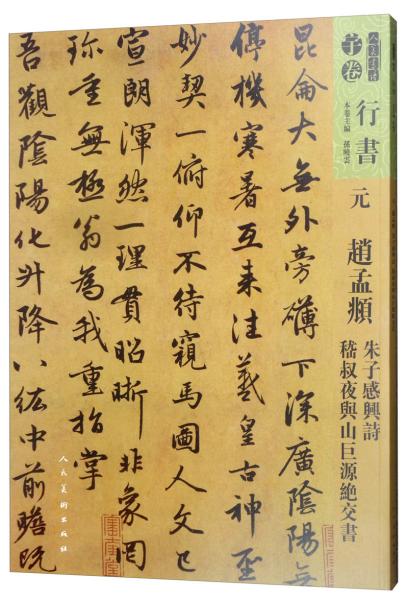 人美書譜
宇卷
行書
本卷主編 孫曉雲
元
趙孟頫
朱子感興詩
嵇叔夜與山巨源絕交書
昆侖大無外旁礴下深廣陰陽
停機寒暑互来往羲皇古神聖
妙契一俯仰不待窺馬圖人文已
宣朗渾然一理貫昭晰非象罔
珎重無極翁為我重指掌
吾觀陰陽化升降八紘中前瞻既
人民美術出版社